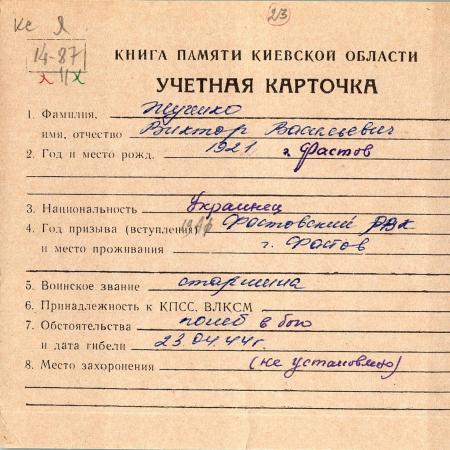 23
14-87
КНИГА ПАМЯТИ КИЕВСКОЙ ОБЛАСТИ
УЧЕТНАЯ КАРТОЧКА
1. Фамилия,
имя, отчество Виктор Васильевич
2. Год и место рожд. 1921 г. Фастов
3. Национальность Украинец
4. Год призыва (вступления) Фастовский РВК
и место проживания г. Фастов
5. Воинское звание старшина
6. Принадлежность к КПСС, ВЛКСМ
7. Обстоятельства погиб в бою
и дата гибели 23.04.44г.
8. Место захоронения (не установлено)